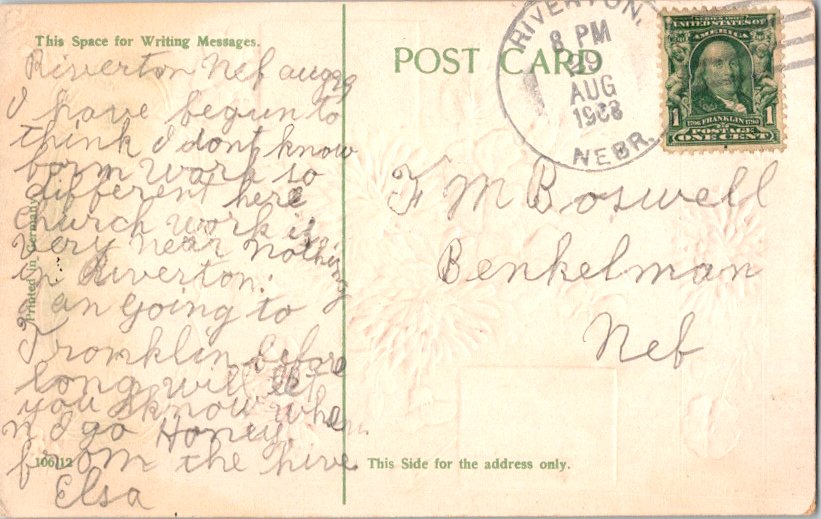 This Space for Writing Messages.
Riverton Neb aug 29
I have begun to
think I dont know
farm work so
different here
Church work is
very near nothing
in Riverton.
an going to
Fronklin before
long will let
you know when
I go Honey
from the hive
Elsa
Printed in Germany
106/12
POST CARD
RIVERTON,
8 PM
29
AUG
1908
NEBR.
SERIES 1902
UNITED STATES OF
AMERICA
1706 FRANKLIN 1790
1 1
POSTAGE
ONE CENT
F M Boswell
Benkelman
Neb
This Side for the address only.